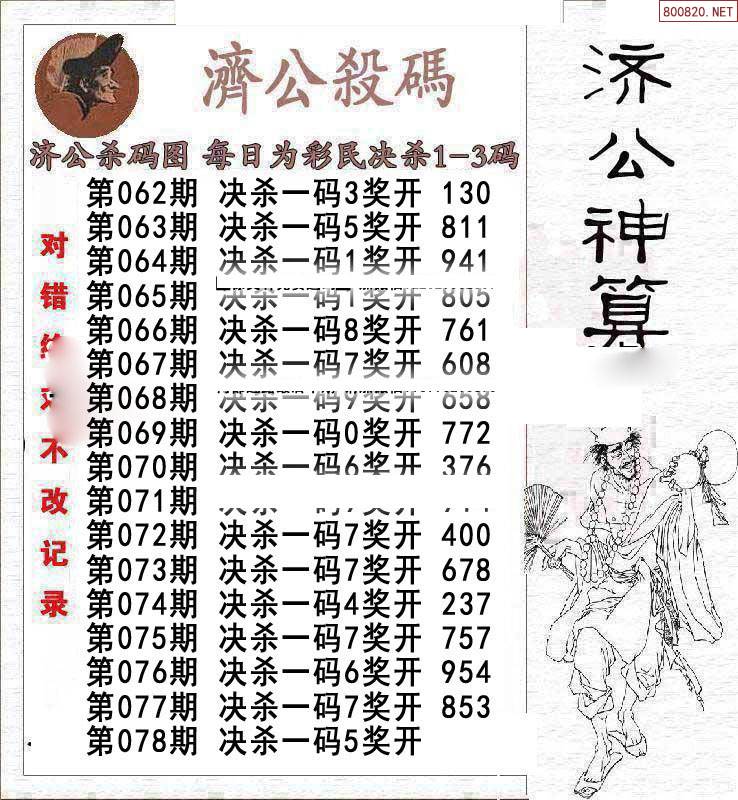 800820.NET
濟公殺碼
济公杀码图 每日为彩民决杀1-3码
第062期 决杀一码3奖开 130
第063期 决杀一码5奖开 811
第064期 决杀一码1奖开 941
第065期 决杀一码1奖开 805
第066期 决杀一码8奖开 761
第067期 决杀一码7奖开 608
第068期 决杀一码9奖开 658
第069期 决杀一码0奖开 772
第070期 决杀一码6奖开 376
第071期
第072期 决杀一码7奖开 400
第073期 决杀一码7奖开 678
第074期 决杀一码4奖开 237
第075期 决杀一码7奖开 757
第076期 决杀一码6奖开 954
第077期 决杀一码7奖开 853
第078期 决杀一码5奖开
对错绝对不改记录
济公神算